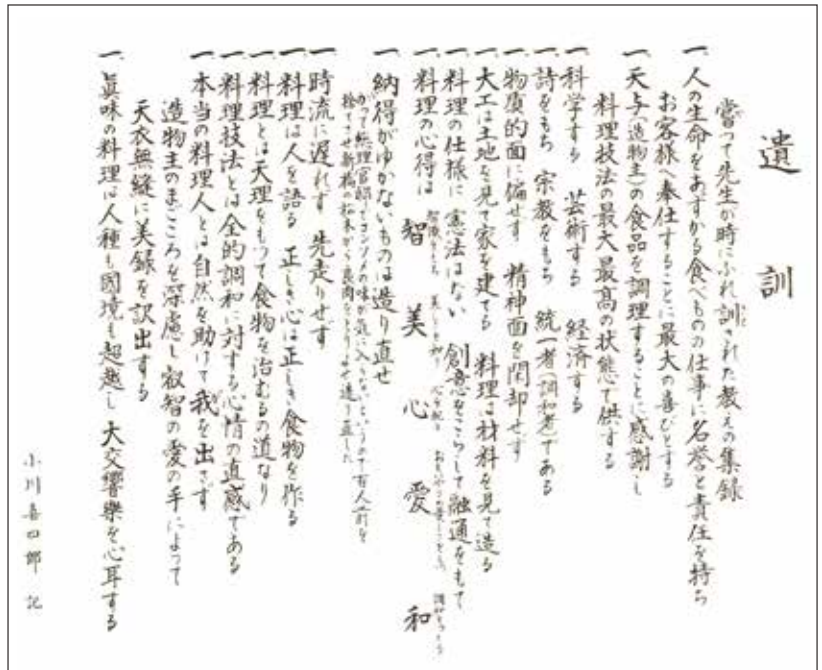 遺訓
嘗つて先生が時にふれ訓された教えの集録
一、人の生命をあずかる食べものの仕事に名誉と責任を持ち
お客様へ奉仕することに最大の喜びとする
一、天与(造物主)の食品を調理することに感謝し
料理技法の最大最高の状態で供する
一、科学する 芸術する 経済する
一、詩をもち 宗教をもち 統一者(調和者)である
一、物質的面に偏せず 精神面を閑却せず
一、大工は土地を見て家を建てる 料理は材料を見て造る
一、料理の仕様に憲法はない 創意をこらして融通をもて
一、料理の心得は 智 美 心 愛 和
一、納得がゆかないものは造り直せ
かつて総理官邸でコンソメの味が気に入らないというので百人前を
捨てさせ新橋の松本から肉をとりよせ造り直した
一、時流に遅れず 先走りせず
一、料理は人を語る 正しき心は正しき食物を作る
一、料理とは天理をもって食物を治むるの道なり
一、料理技法とは全的調和に対する心情の直感である
一、本当の料理人とは自然を助けて我を出さず
造物主のまごころを深慮し叡智の愛の手によって
天衣無縫に美録を訳出する
一、眞味の料理は人種も國境も超越し大交響樂を心耳する
小川喜四郎 記